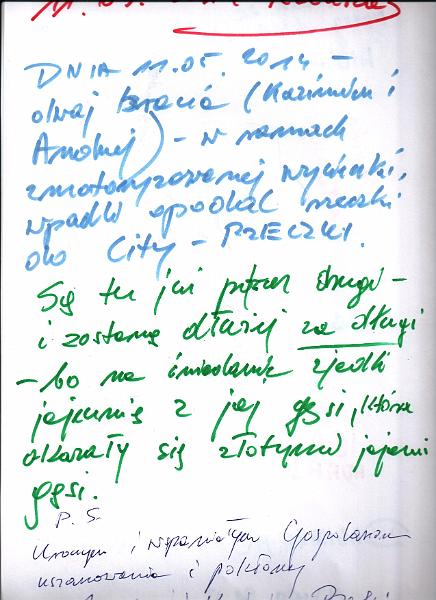 DNIA 11.05.2014 -
dwaj bracia (Kazimierz i
Andrzej) - w ramach
zmotoryzowanej wycieczki,
wpadli opodal rzeczki
do City - RZECZKI.
Są tu już przez drugi -
i zostaną dłużej za długi
- bo na śniadanie zjedli
jajecznię z jaj gęsi, które
okazały się złotymi jajami
gęsi.
P.S.
i wspaniałym Gospodarzom
uszanowania i pokłony